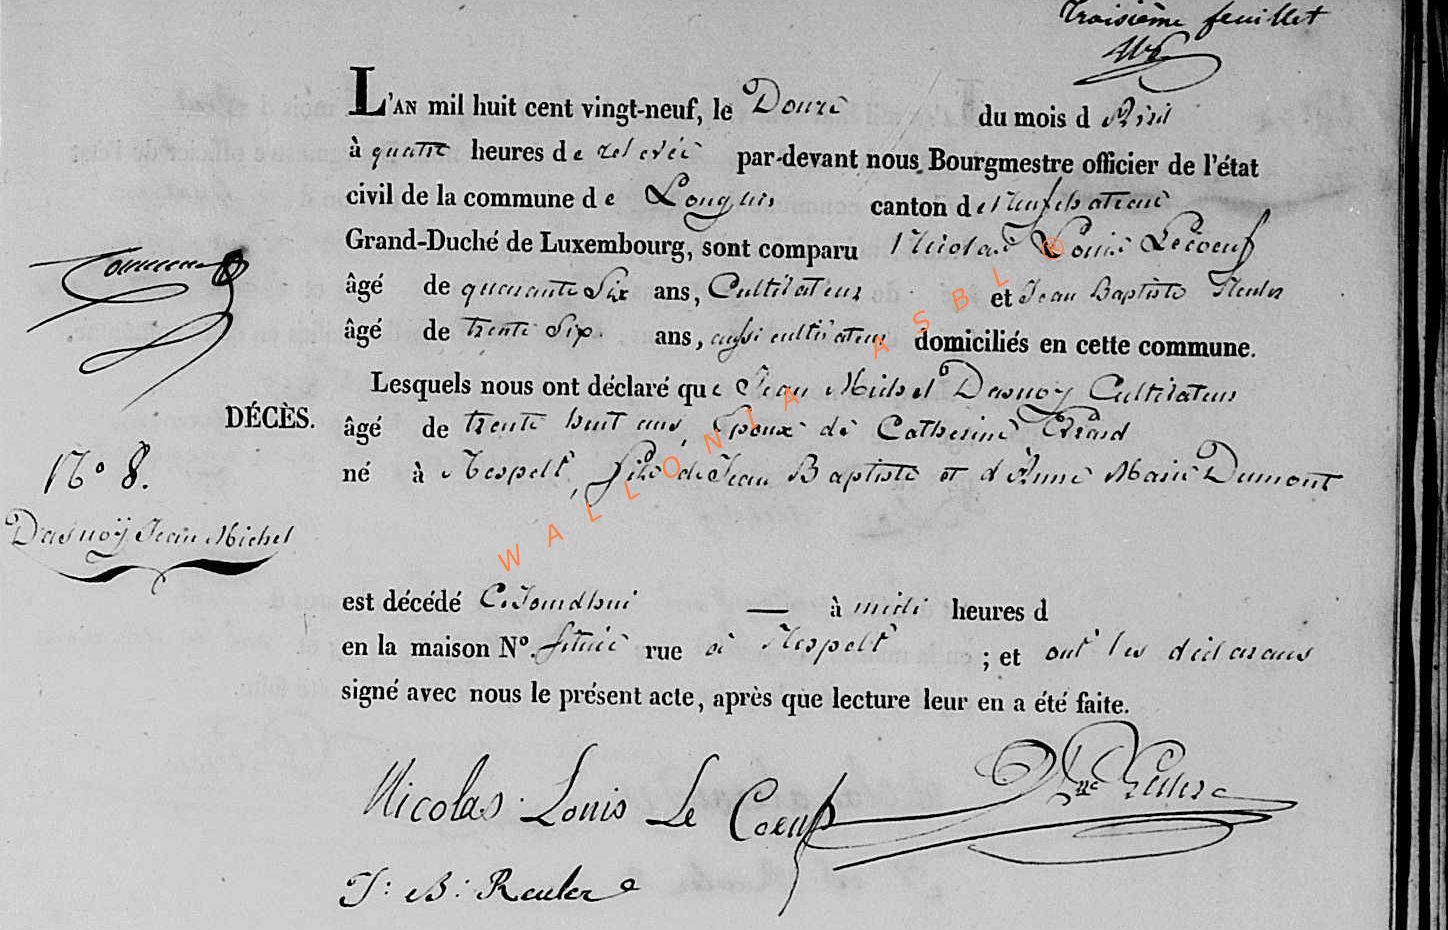 Troisième feuillet
L'AN mil huit cent vingt-neuf, le Douze du mois d Avril
à quatre heures de relevée par-devant nous Bourgmestre officier de l'état
civil de la commune de Longlier canton de Neufchateau
Grand-Duché de Luxembourg, sont comparu Nicolas Louis Lecoeuf
âgé de quarante Six ans, Cultivateur et Jean Baptiste Reuler
âgé de trente Six ans, aussi cultivateur domiciliés en cette commune.
Lesquels nous ont déclaré que Jean Michel Dasnoy Cultivateur
âgé de trente huit ans, Epoux de Catherine Evrard
né à Respelt, fils de Jean Baptiste et d'Anne Marie Dumont
DÉCÈS.
N° 8.
Dasnoÿ Jean Michel
est décédé Cejourdhui — à midi heures d
en la maison N°. située rue à Respelt ; et ont les déclarans
signé avec nous le présent acte, après que lecture leur en a été faite.
Nicolas Louis Le Coeuf
J: B: Reuler
WALLONIA ASBL ®